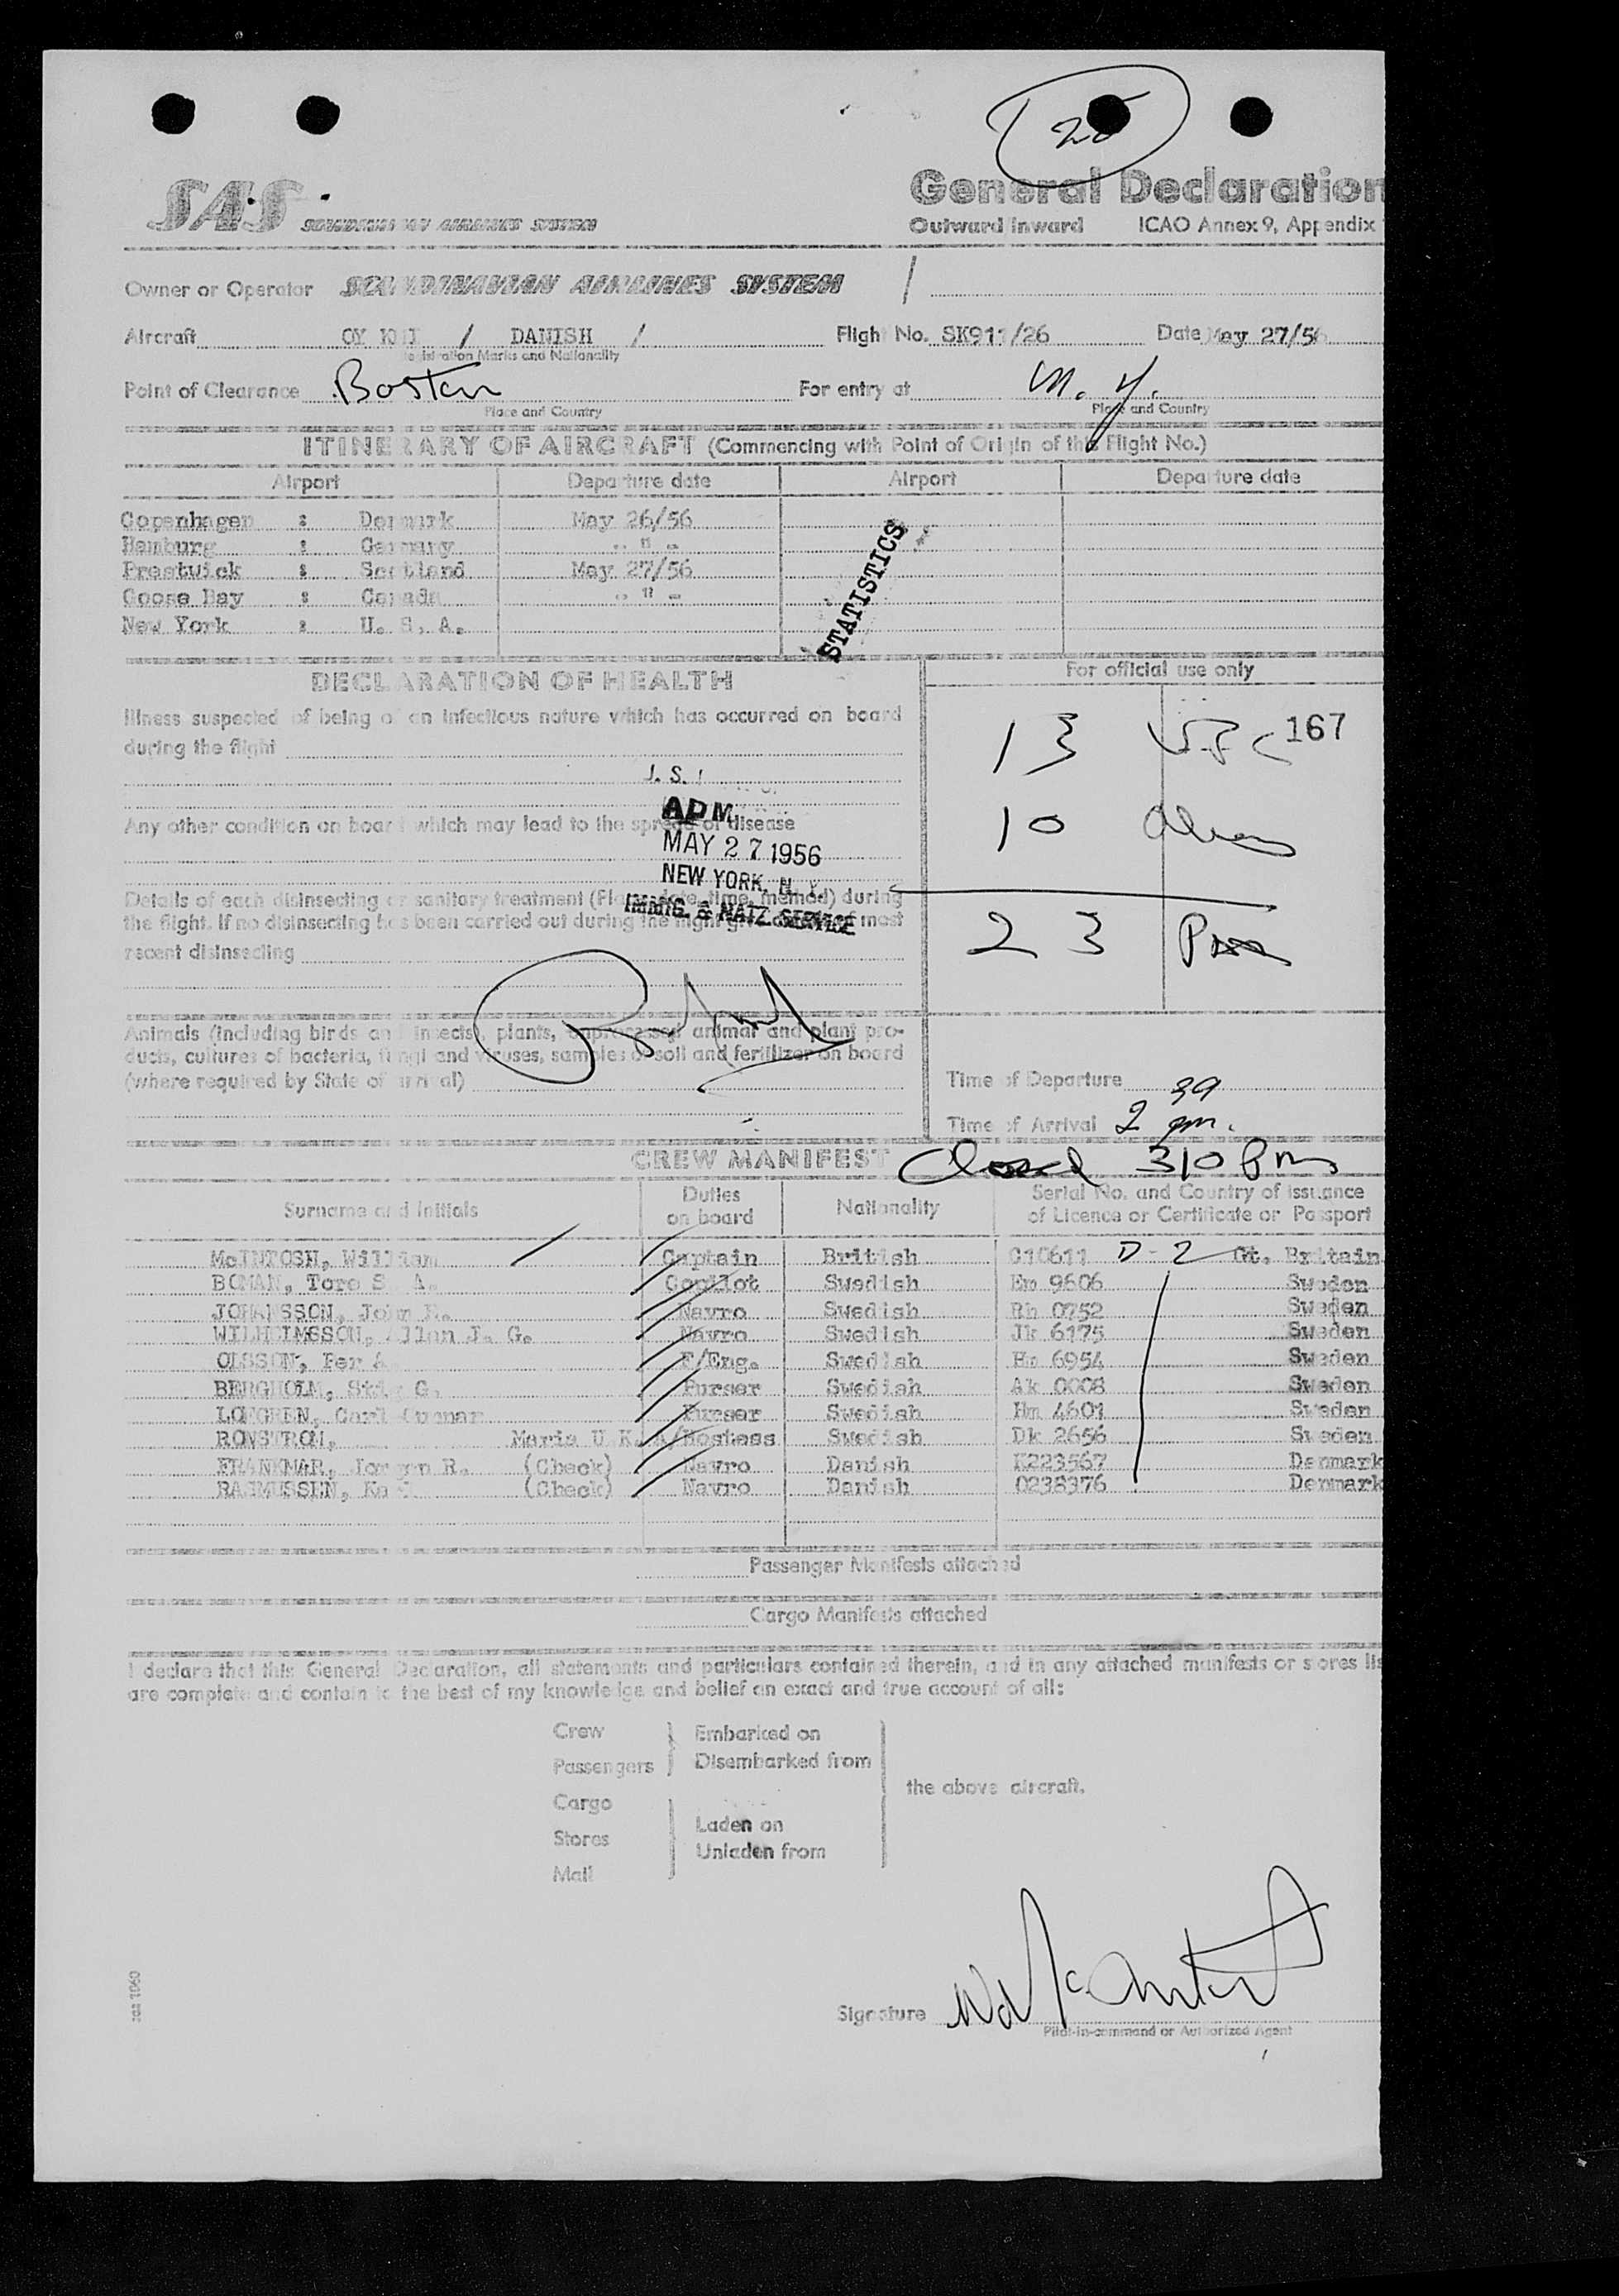 SAS SCANDINAVIAN AIRLINES SYSTEM
General Declaration
Outward Inward ICAO Annex 9, Appendix
Owner or Operator SCANDINAVIAN AIRLINES SYSTEM
Aircraft OY / DANISH / Flight No. SK911/26 Date May 27/56
Registration Marks and Nationality
Point of Clearance Boston For entry at N.Y.
Place and Country Place and Country
ITINERARY OF AIRCRAFT (Commencing with Point of Origin of this Flight No.)
Airport Departure date Airport Departure date
Copenhagen : Denmark May 26/56
Hamburg : Germany - " -
Prestwick : Scotland May 27/56
Goose Bay : Canada - " -
New York : U. S. A.
STATISTICS
DECLARATION OF HEALTH
For official use only
Illness suspected of being of an infectious nature which has occurred on board
during the flight
13 167
Any other condition on board which may lead to the spread of disease
10
ADM.
MAY 27 1956
NEW YORK, N. Y.
IMMIG. & NATZ. SERVICE
Details of each disinsecting or sanitary treatment (Place, date, time, method) during
the flight. If no disinsecting has been carried out during the flight give details of most
recent disinsecting
23
Animals (including birds and insects), plants, unprocessed animal and plant pro-
ducts, cultures of bacteria, fungi and viruses, samples of soil and fertilizer on board
(where required by State of arrival)
Time of Departure
Time of Arrival 2 39 pm.
CREW MANIFEST Closed 310 Pm
Surname and Initials Duties on board Nationality Serial No. and Country of issuance of Licence or Certificate or Passport
McINTOSH, William Captain British C10611 D-2 Gt. Britain
BOMAN, Tore S. A. Copilot Swedish Em 9606 Sweden
JOHANSSON, John Navro Swedish Rh 0752 Sweden
WILHELMSSON, Allan J. G. Navro Swedish Jk 6175 Sweden
OLSSON, Per A F/Eng. Swedish 6954 Sweden
BERGHOLM, Stig G. Purser Swedish Ak 0008 Sweden
LOVGREN, Carl Gunnar Purser Swedish Hm 4601 Sweden
RONSTROM, Maria U K. A/Hostess Swedish Dk 2656 Sweden
FRANKMAR, Jorgen R. (Check) Navro Danish K223567 Denmark
RASMUSSEN, (Check) Navro Danish 0238376 Denmark
Passenger Manifests attached
Cargo Manifests attached
I declare that this General Declaration, all statements and particulars contained therein, and in any attached manifests or stores lis
are complete and contain to the best of my knowledge and belief an exact and true account of all:
Crew Embarked on
Passengers Disembarked from
the above aircraft.
Cargo
Stores Laden on
Unladen from
Mail
Signature
Pilot-in-command or Authorized Agent